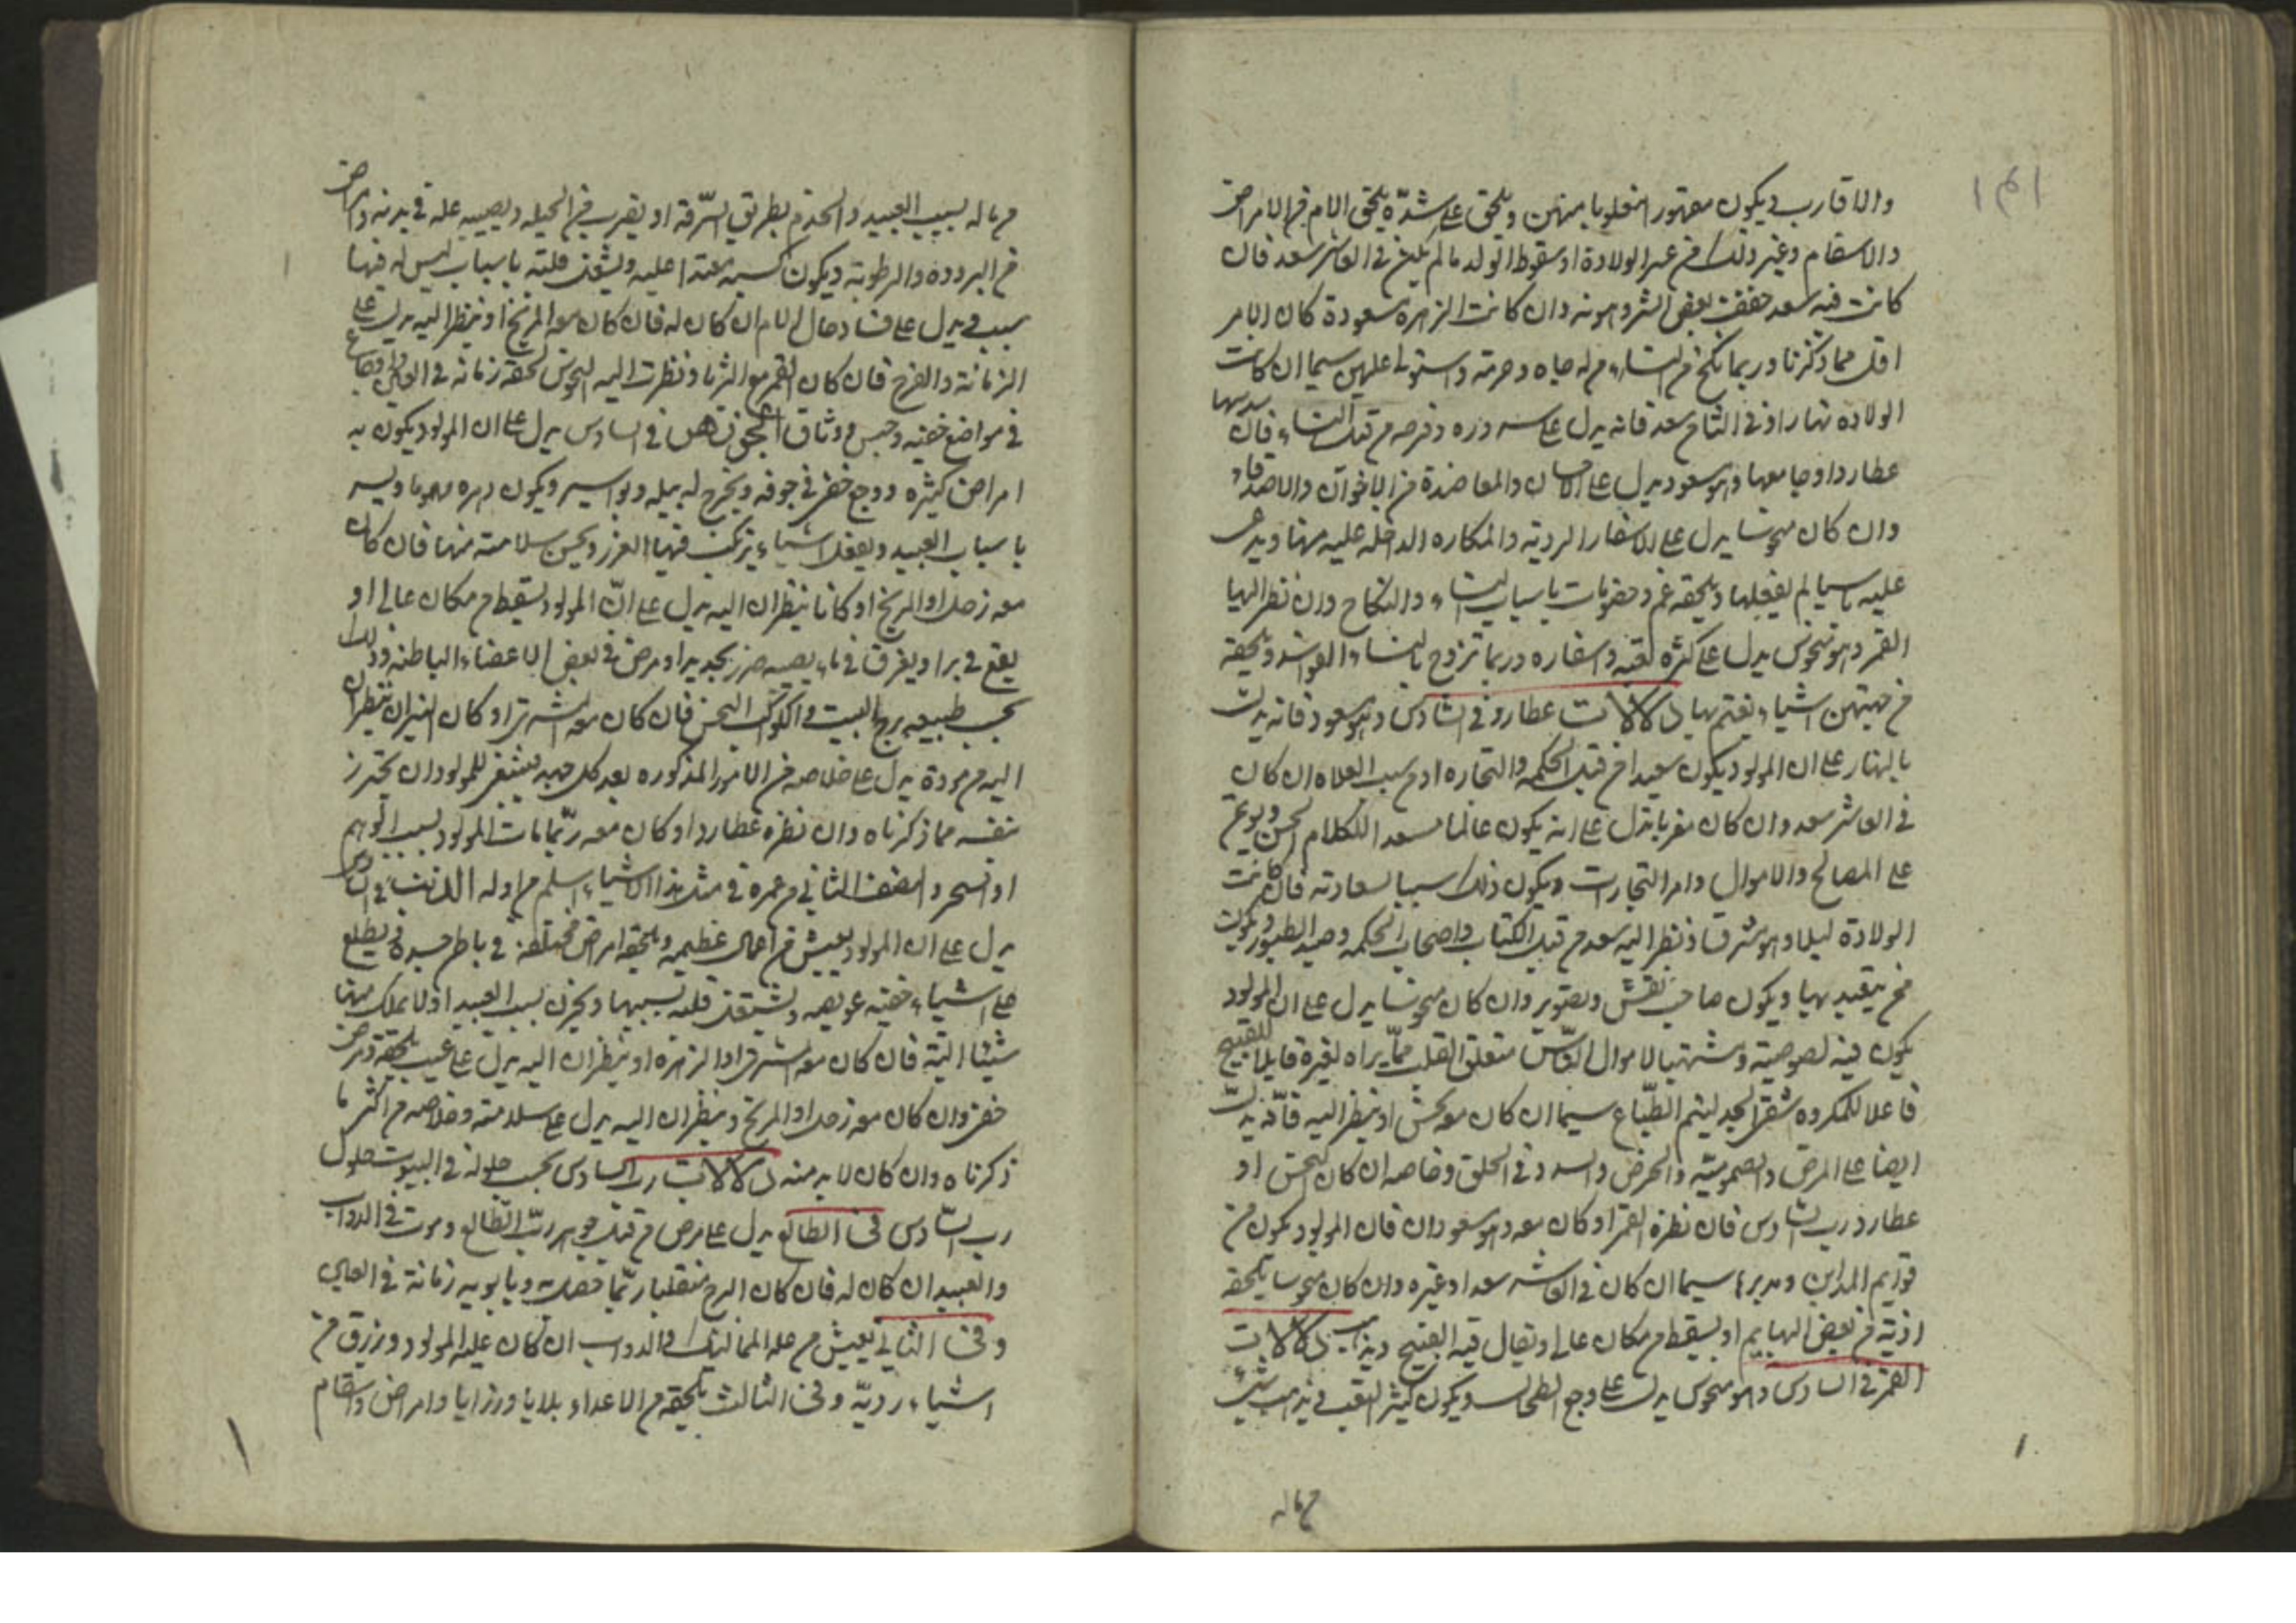 والاقارب ويكون مقهورا مغلوبا منهن ويلحق على شدة يلحق الام من الامراض
والاسقام وغير ذلك من عسر الولادة او سقوط الولد ما لم يكن في العاشر سعد فان
كانت فيه سعد خففت بعض الشر وهونه وان كانت الزهره مسعودة كان الامر
اقل مما ذكرنا وربما نكح من النساء من له جاه وحرمة واستولى عليهن سيما ان كانت
الولاده نهارا وفي التاسع سعد فانه يدل على سروره وفرحه من قبل النساء فان
عطارد او جامعها وهو مسعود يدل على الاحسان والمعاضدة من الاخوان والاصدقاء
وان كان منحوسا يدل على الاسفار الردية والمكاره الداخله عليه منها ويدعى
عليه باسيا لم يفعلها ويلحقه غم وخصومات باسباب النساء والنكاح وان نظر اليها
القمر وهو منحوس يدل على كثرة تعبه واسفاره وربما تزوج بالنساء الفواسد ويلحقه
من جهتهن اشياء يغتم بها دلالات عطارد في السادس وهو مسعود فانه يدل
بالنهار على ان المولود يكون سعيدا من قبل الحكمه والتجاره او من سبب الفلاه ان كان
في العاشر سعد وان كان مغربا يدل على انه يكون عالما الكلام الحسن ويوتمن
على المصالح والاموال وامر التجارات ويكون ذلك سببا لسعادته فان كانت
الولادة ليلا وهو مشرقا ونظر اليه سعد من قبل الكتاب واصحاب الحكمه وصيد الطيور ويكون
ممن يتعبد بها ويكون صاحب نقش وتصوير وان كان منحوسا يدل على ان المولود
يكون فيه لصوصية ومشتهيا لاموال الناس متعلق القلب مما يراه لغيره قايلا للقبيح
فاعلا للمكروه شقي الجد ليئم الطباع سيما ان كان مع نحس او ينظر اليه فانه يدل
ايضا على المرض والصمومية والخرس والسدد في الحلق وخاصه ان كان النحس او
عطارد رب السادس فان نظره القمر او كان معه وهو مسعود ان فان المولود يكون من
قوايم المداين ومدبرها سيما ان كان في العاشر سعد او غيره وان كان منحوسا يلحقه
اذية من بعض البهايم او يسقط من مكان عال او يقال فيه القبيح دلالات
القمر في السادس وهو منحوس يدل على وجع الطحال ويكون كثير التعب ويذهب شيء
من ماله
من ماله بسبب العبيد والخدم بطريق السرقة او بضرب من الحيله ويصيبه علة في بدنه وامراض
من البروده والرطوبة ويكون كسبه معتدا عليه ويشغل قلبه باسباب ليس له فيها
سبب ويدل على فساد حال الام ان كان له فان كان معه المريخ او ينظر اليه يدل على
الزمانة والفزع فان كان القمر مع الثريا ونظرت اليه النحوس لحقه زمانه في العين
في مواضع خفيه وحبس ووثاق في السادس يدل على ان المولود يكون به
امراض كثيره ووجع خفي في جوفه ويخرج له بيله وبواسير ويكون دهره مهموما وليس
باسباب العبيد ويفعل اشياء يرتكب فيها الغرر ويحسن سلامته منها فان كان
معه زحل او المريخ او كانا ينظران اليه يدل على ان المولود يسقط من مكان عالي او
يقع في بر او يغرق في ماء يصيبه ضرر بحديد او مرض في بعض الاعضاء الباطنه وذلك
بحسب طبيعه برج البيت والكوكب النحس فان كان معه المشتري او كان النيران ينظران
اليه من مودة يدل على خلاصه من الامور المذكوره بعد كل جهد فينبغي للمولود ان يحترز
بنفسه مما ذكرناه وان نظره عطارد او كان معه ربما مات المولود بسبب الوهم
او السحر والنصف الثاني من عمره في مثل هذه الاشياء اسلم من اوله الذنب في السادس
يدل على ان المولود يعيش من اعمال عظيمه ويلحقه امراض مختلفه في باطن جسده ويطلع
على اشياء خفيه عويصه ويشتغل قلبه بسببها ويحزن بسبب العبيد او لا يملك منها
شيئا البتة فان كان معه المشتري او الزهرة او ينظران اليه يدل على عيب يلحقه ومرض
خفي وان كان معه زحل او المريخ وينظران اليه يدل على سلامته وخلاصه من اكثر ما
ذكرناه وان كان لا بد منه دلالات رب السادس بحسب حلوله في البيوت حلول
رب السادس في الطالع يدل على مرض من قبل جوهر رب الطالع وموت في الدواب
والعبيد ان كان له فان كان البرج منقلبا ربما زمانة في
وفي الثاني يعيش من غلة المماليك والدواب ان كان غله المولود ويرزق من
اشياء ردية وفي الثالث يلحقه من الاعداء بلايا ورزايا وامراض واسقام